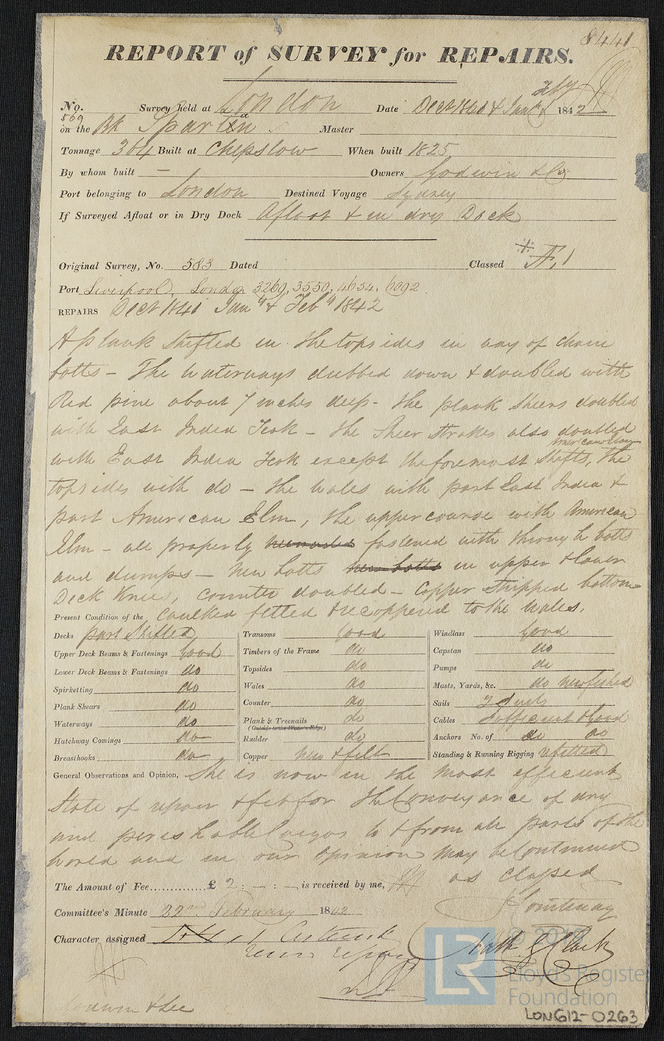 8441
REPORT of SURVEY for REPAIRS.
No. 569 Survey held at London Date Decr 1841 & Jany & Feby 1842
on the Bk Spartan Master
Tonnage 364 Built at Chepstow When built 1825
By whom built — Owners Godwin & Co
Port belonging to London Destined Voyage Sydney
If Surveyed Afloat or in Dry Dock Afloat & in dry Dock
Original Survey, No. 583 Dated Classed * Æ 1
Port Liverpool, London 3269, 3550, 4654, 6092
REPAIRS Decr 1841 Jany & Feby 1842
A plank shifted in the topsides in way of chain
bolts – The waterways dubbed down & doubled with
Red pine about 7 inches deep – the plank sheers doubled
with East India Teak – the Sheer strakes also doubled
with East India Teak except the foremost shifts, the
topsides with do – the wales with part East India &
part American Elm, the upper course with American
Elm – all properly fastened with through bolts
and dumps – New bolts new bolts in upper & lower
Deck Knees, Counter doubled – Copper stripped bottom
caulked felted & recoppered to the wales.
Present Condition of the
Decks part Shifted Transoms Good Windlass Good
Upper Deck Beams & Fastenings Good Timbers of the Frame do Capstan do
Lower Deck Beams & Fastenings do Topsides do Pumps do
Spirketting do Wales do Masts, Yards, &c. do
Plank Shears do Counter do Sails 2 Suits
Waterways do Plank & Treenails do Cables Sufficient & Good
(Outside to the Waters Edge)
Hatchway Comings do Rudder do Anchors No. of do do
Breasthooks do Copper New & felt Standing & Running Rigging refitted
General Observations and Opinion, She is now in the most efficient
State of repair & fit for the Conveyance of dry
and perishable Cargos to & from all parts of the
world and in our opinion may be Continued
as Classed
The Amount of Fee............ £ 2 : – : – is received by me,
Committee's Minute 22nd February 1842
Character assigned
Courtenay
Nath G Clark
Godwin & Lee
LR
© 20
Lloyd's Register
Foundation
LON612-0263